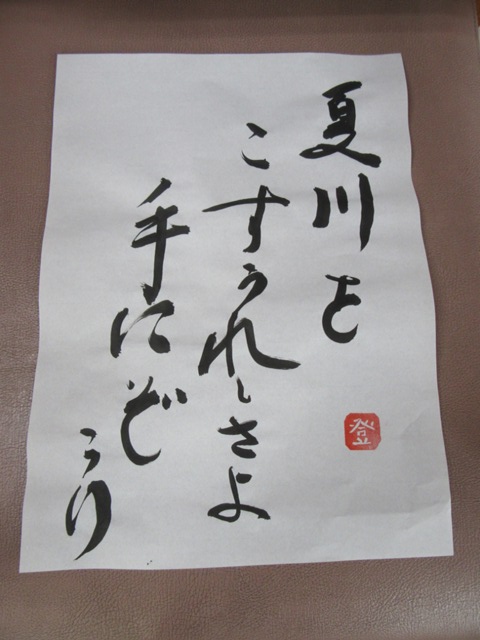 夏川を
こすうれしさよ
手にぞ
うり
登